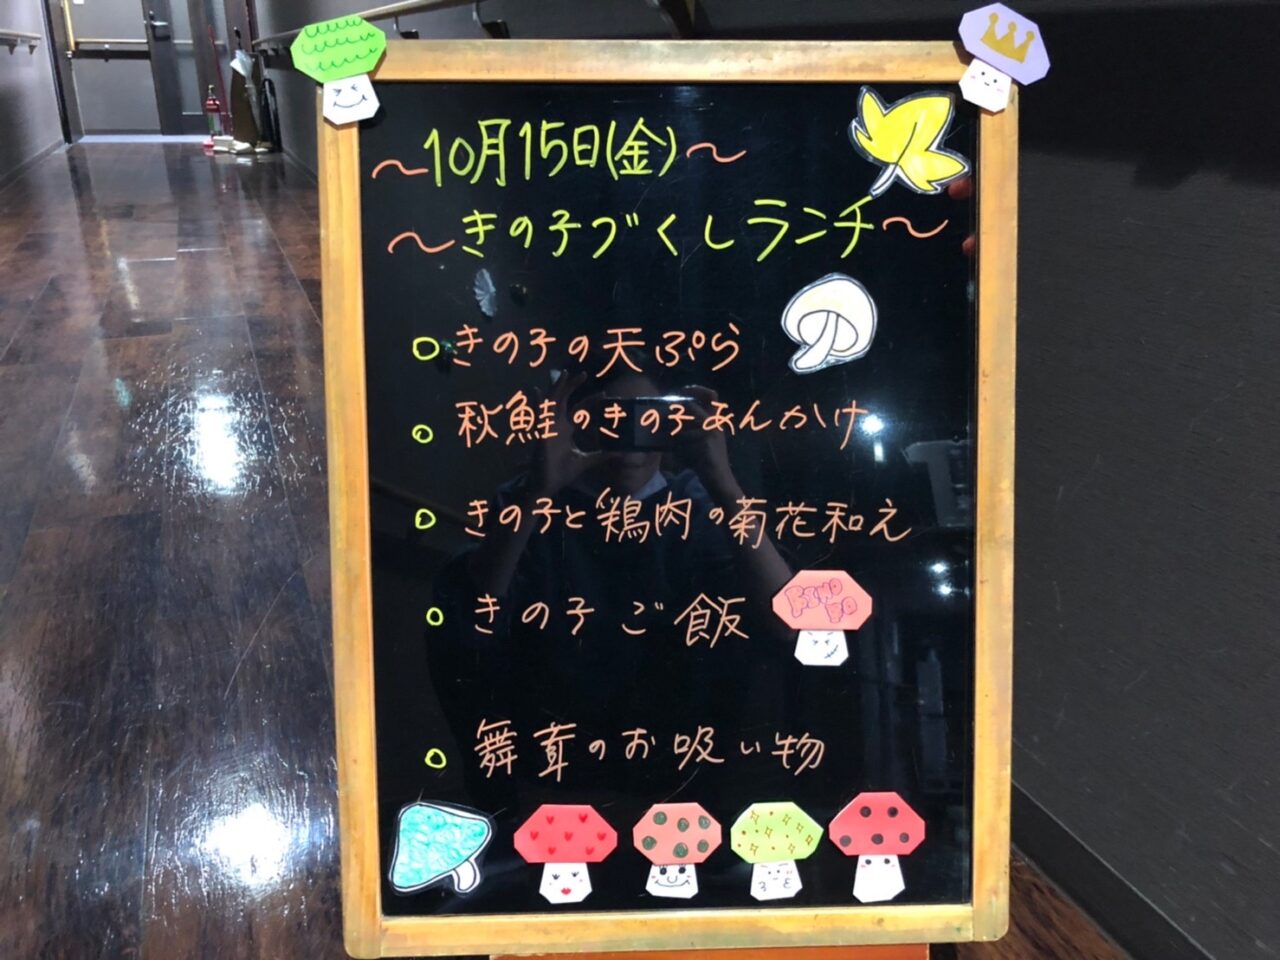 ～10月15日(金)～
～きの子づくしランチ～
○ きの子の天ぷら
○ 秋鮭のきの子あんかけ
○ きの子と鶏肉の菊花和え
○ きの子ご飯
KINO
KO
○ 舞茸のお吸い物